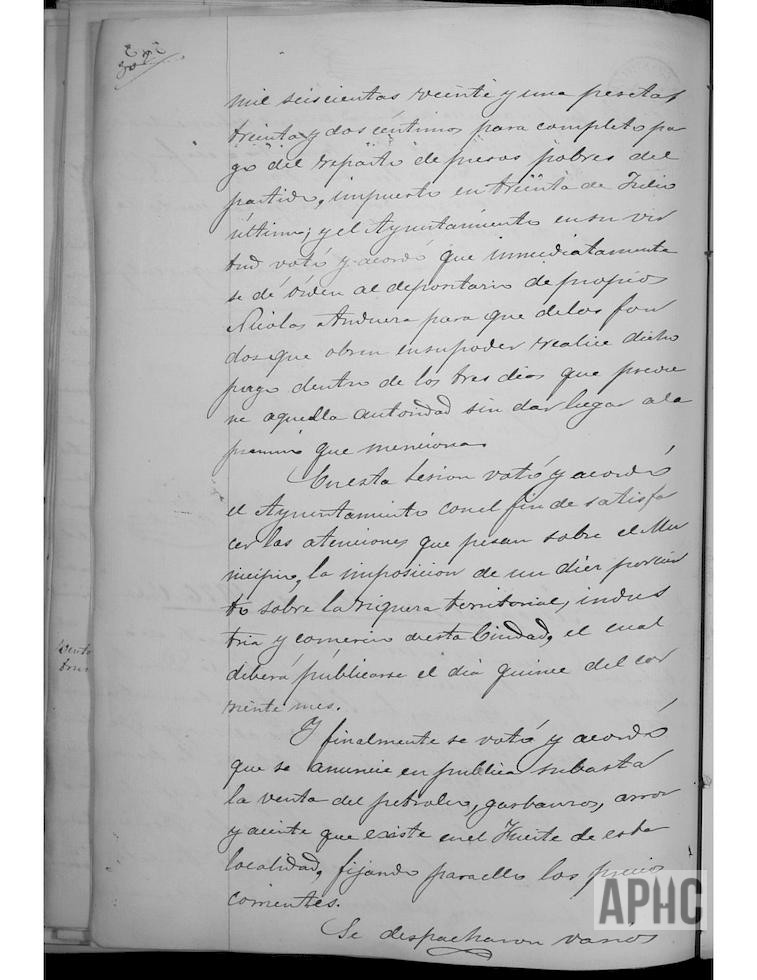 mil seiscientas veinte y una pesetas
treinta y dos céntimos para completo pa
go del reparto de presos pobres del
partido, impuesto en treinta de Julio
último; y el Ayuntamiento en su vir
tud votó y acordó que inmediatamente
se dé órden al depositario de propios
Nicolas Anduera para que de los fon
dos que obran en su poder realice dicho
pago dentro de los tres dias que previe
ne aquella autoridad sin dar lugar a la
premio que menciona.
En esta sesion votó y acordó
el Ayuntamiento con el fin de satisfa
cer las atenciones que pesan sobre el Mu
nicipio, la imposicion de un diez por cien
to sobre la riquera territorial, indus
tria y comercio de esta Ciudad, el cual
deberá públicarse el dia quince del cor
riente mes.
Y finalmente se votó y acordó
que se anuncie en publica subasta
la venta del petroleo, garbanzos, arroz
y aceite que existe en el Fuerte de esta
localidad, fijando para ello los precios
corrientes.
Se despacharon varios
APHC